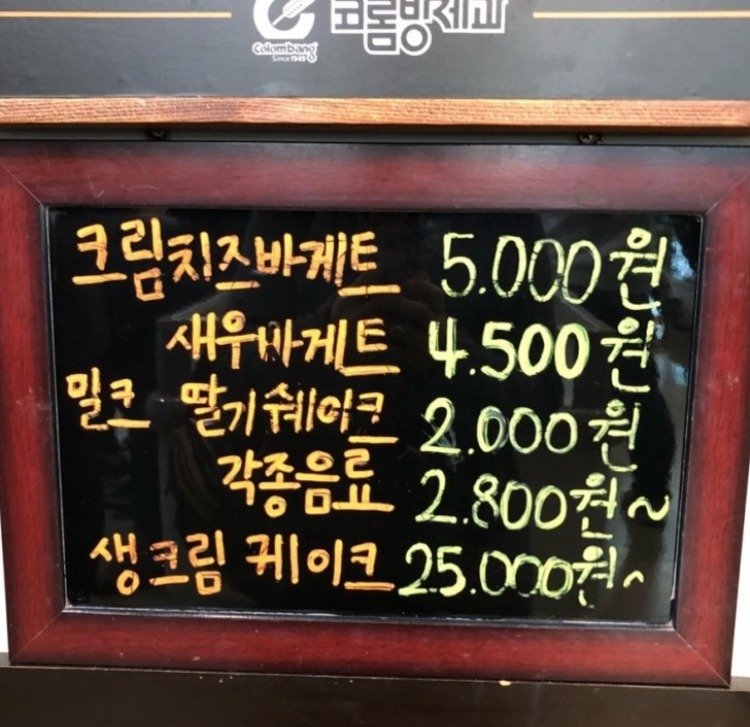 Colombang
Since 1949
코롬방제과
크림치즈바게트 5.000원
새우바게트 4.500원
밀크 딸기쉐이크 2.000원
각종음료 2.800원~
생크림 케이크 25.000원~